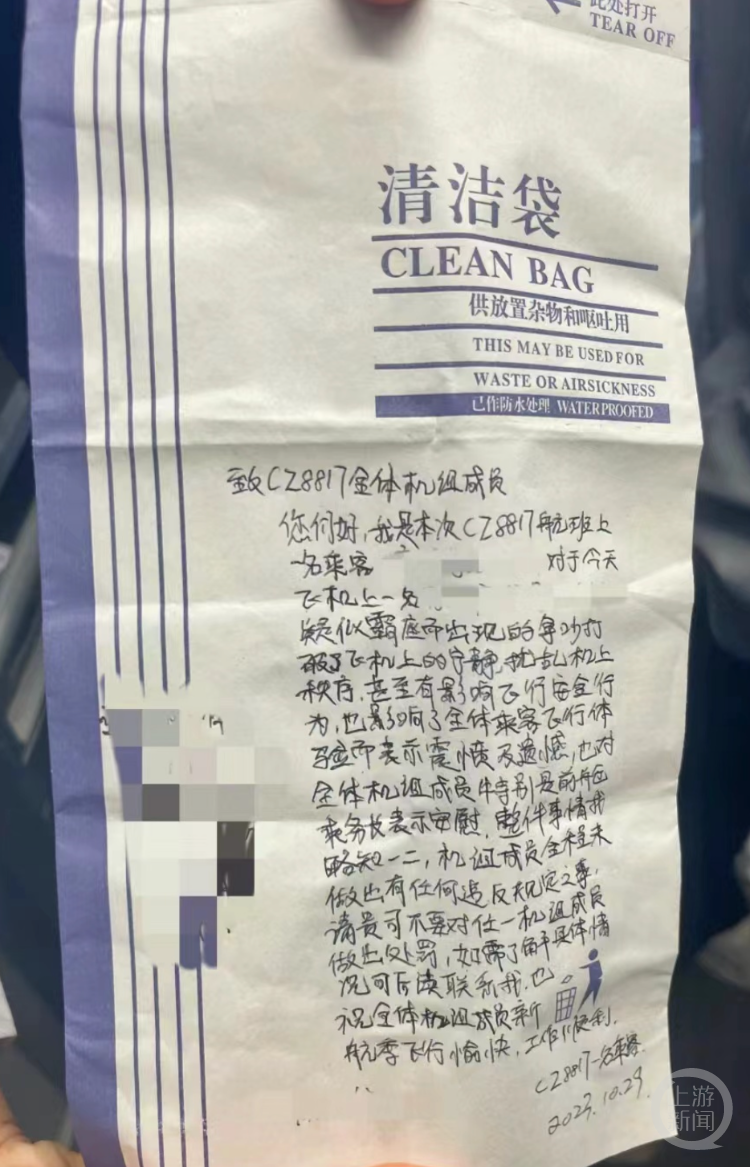 此处打开
TEAR OFF
清洁袋
CLEAN BAG
供放置杂物和呕吐用
THIS MAY BE USED FOR
WASTE OR AIRSICKNESS
已作防水处理 WATERPROOFED
致CZ8817全体机组成员
您们好,我是本次CZ8817航班上
一名乘客 对于今天
飞机上一名
疑似霸座而出现的争吵打
破了飞机上的宁静,扰乱机上
秩序,甚至有影响飞行安全行
为,也影响了全体乘客飞行体
验而表示震愤及遗憾,也对
全体机组成员特别是前舱
乘务长表示安慰,整件事情我
略知一二,机组成员全程未
做出有任何违反规定之事,
请贵司不要对任一机组成员
做出处罚,如需了解具体情
况可后续联系我,也
祝全体机组成员新
航季飞行愉快,工作顺利.
CZ8817一名乘客
2023.10.29.
上游
新闻